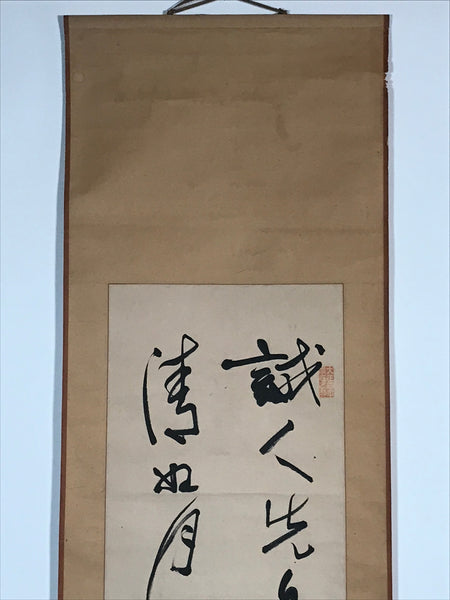 誡人先
清如月